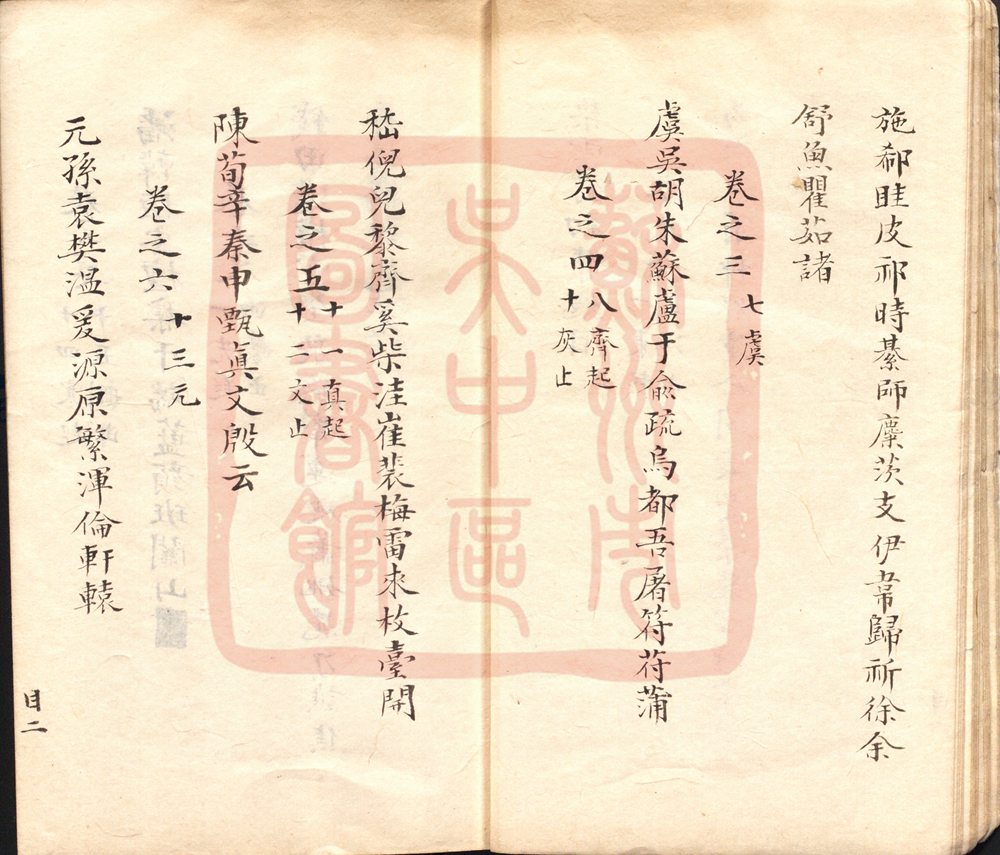 施郗眭皮祁時綦師麋茨支伊韋歸祈徐余
舒魚瞿茹諸
卷之三 七虞
虞吳胡朱蘇盧于俞疏烏都吾屠符苻蒲
卷之四 八齊起 十灰止
嵇倪兒黎齊奚柴洼崔裴梅雷來枚臺開
卷之五 十一真起 十二文止
陳荀辛秦申甄真文殷云
卷之六 十三元
元孫袁樊温爰源原繁渾倫軒轅
目二
蘇州市
吳中區
圖書館